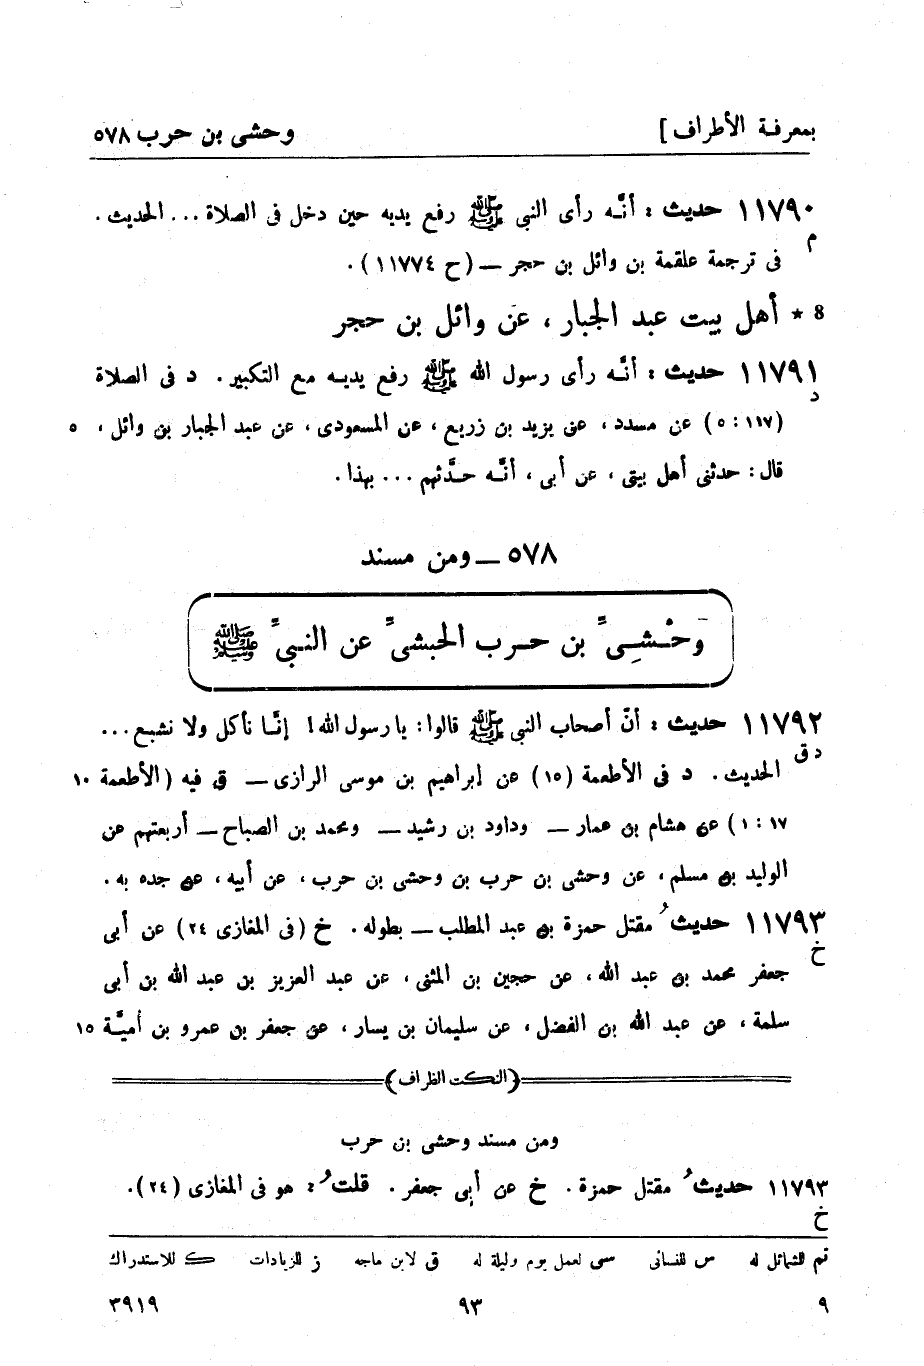 بمعرفة الأطراف ] وحشى بن حرب ٥٧٨
١١٧٩٠ حديث : أنَّه رأى النبي ﷺ رفع يديه حين دخل فى الصلاة ... الحديث .
م
فى ترجمة علقمة بن وائل بن حجر — (ح ١١٧٧٤) .
8 * أهل بيت عبد الجبار ، عن وائل بن حجر
١١٧٩١ حديث : أنَّه رأى رسول الله ﷺ رفع يديه مع التكبير . د فى الصلاة
د
(١١٧ : ٥) عن مسدد ، عن يزيد بن زريع ، عن المسعودى ، عن عبد الجبار بن وائل ، ٥
قال : حدثنى أهل بيتى ، عن أبى ، أنَّه حدَّثهم ... بهذا .
٥٧٨ — ومن مسند
وَحْشِىِّ بن حرب الحبشىِّ عن النبىِّ ﷺ
١١٧٩٢ حديث : أنّ أصحاب النبى ﷺ قالوا : يا رسول الله ! إنَّا نأكل ولا نشبع ...
د ق
الحديث . د فى الأطعمة (١٥) عن إبراهيم بن موسى الرازى — ق فيه (الأطعمة ١٠
١٧ : ١) عن هشام بن عمار — وداود بن رشيد — ومحمد بن الصباح — أربعتهم عن
الوليد بن مسلم ، عن وحشى بن حرب بن وحشى بن حرب ، عن أبيه ، عن جده به .
١١٧٩٣ حديثُ مقتل حمزة بن عبد المطلب — بطوله . خ (فى المغازى ٢٤) عن أبى
خ
جعفر محمد بن عبد الله ، عن حجين بن المثنى ، عن عبد العزيز بن عبد الله بن أبى
سلمة ، عن عبد الله بن الفضل ، عن سليمان بن يسار ، عن جعفر بن عمرو بن أميَّة ١٥
(النكت الظراف)
ومن مسند وحشى بن حرب
١١٧٩٣ حديثُ مقتل حمزة . خ عن أبى جعفر . قلتُ : هو فى المغازى (٢٤) .
خ
تم للشمائل له س للنسائى سى لعمل يوم وليلة له ق لابن ماجه ز للزيادات ك للاستدراك
٩ ٩٣ ٣٩١٩